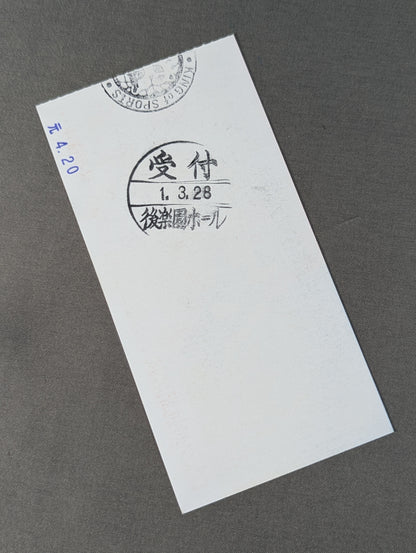 KING of SPORTS
元 4.20
受付
1. 3.28
後楽園ホール